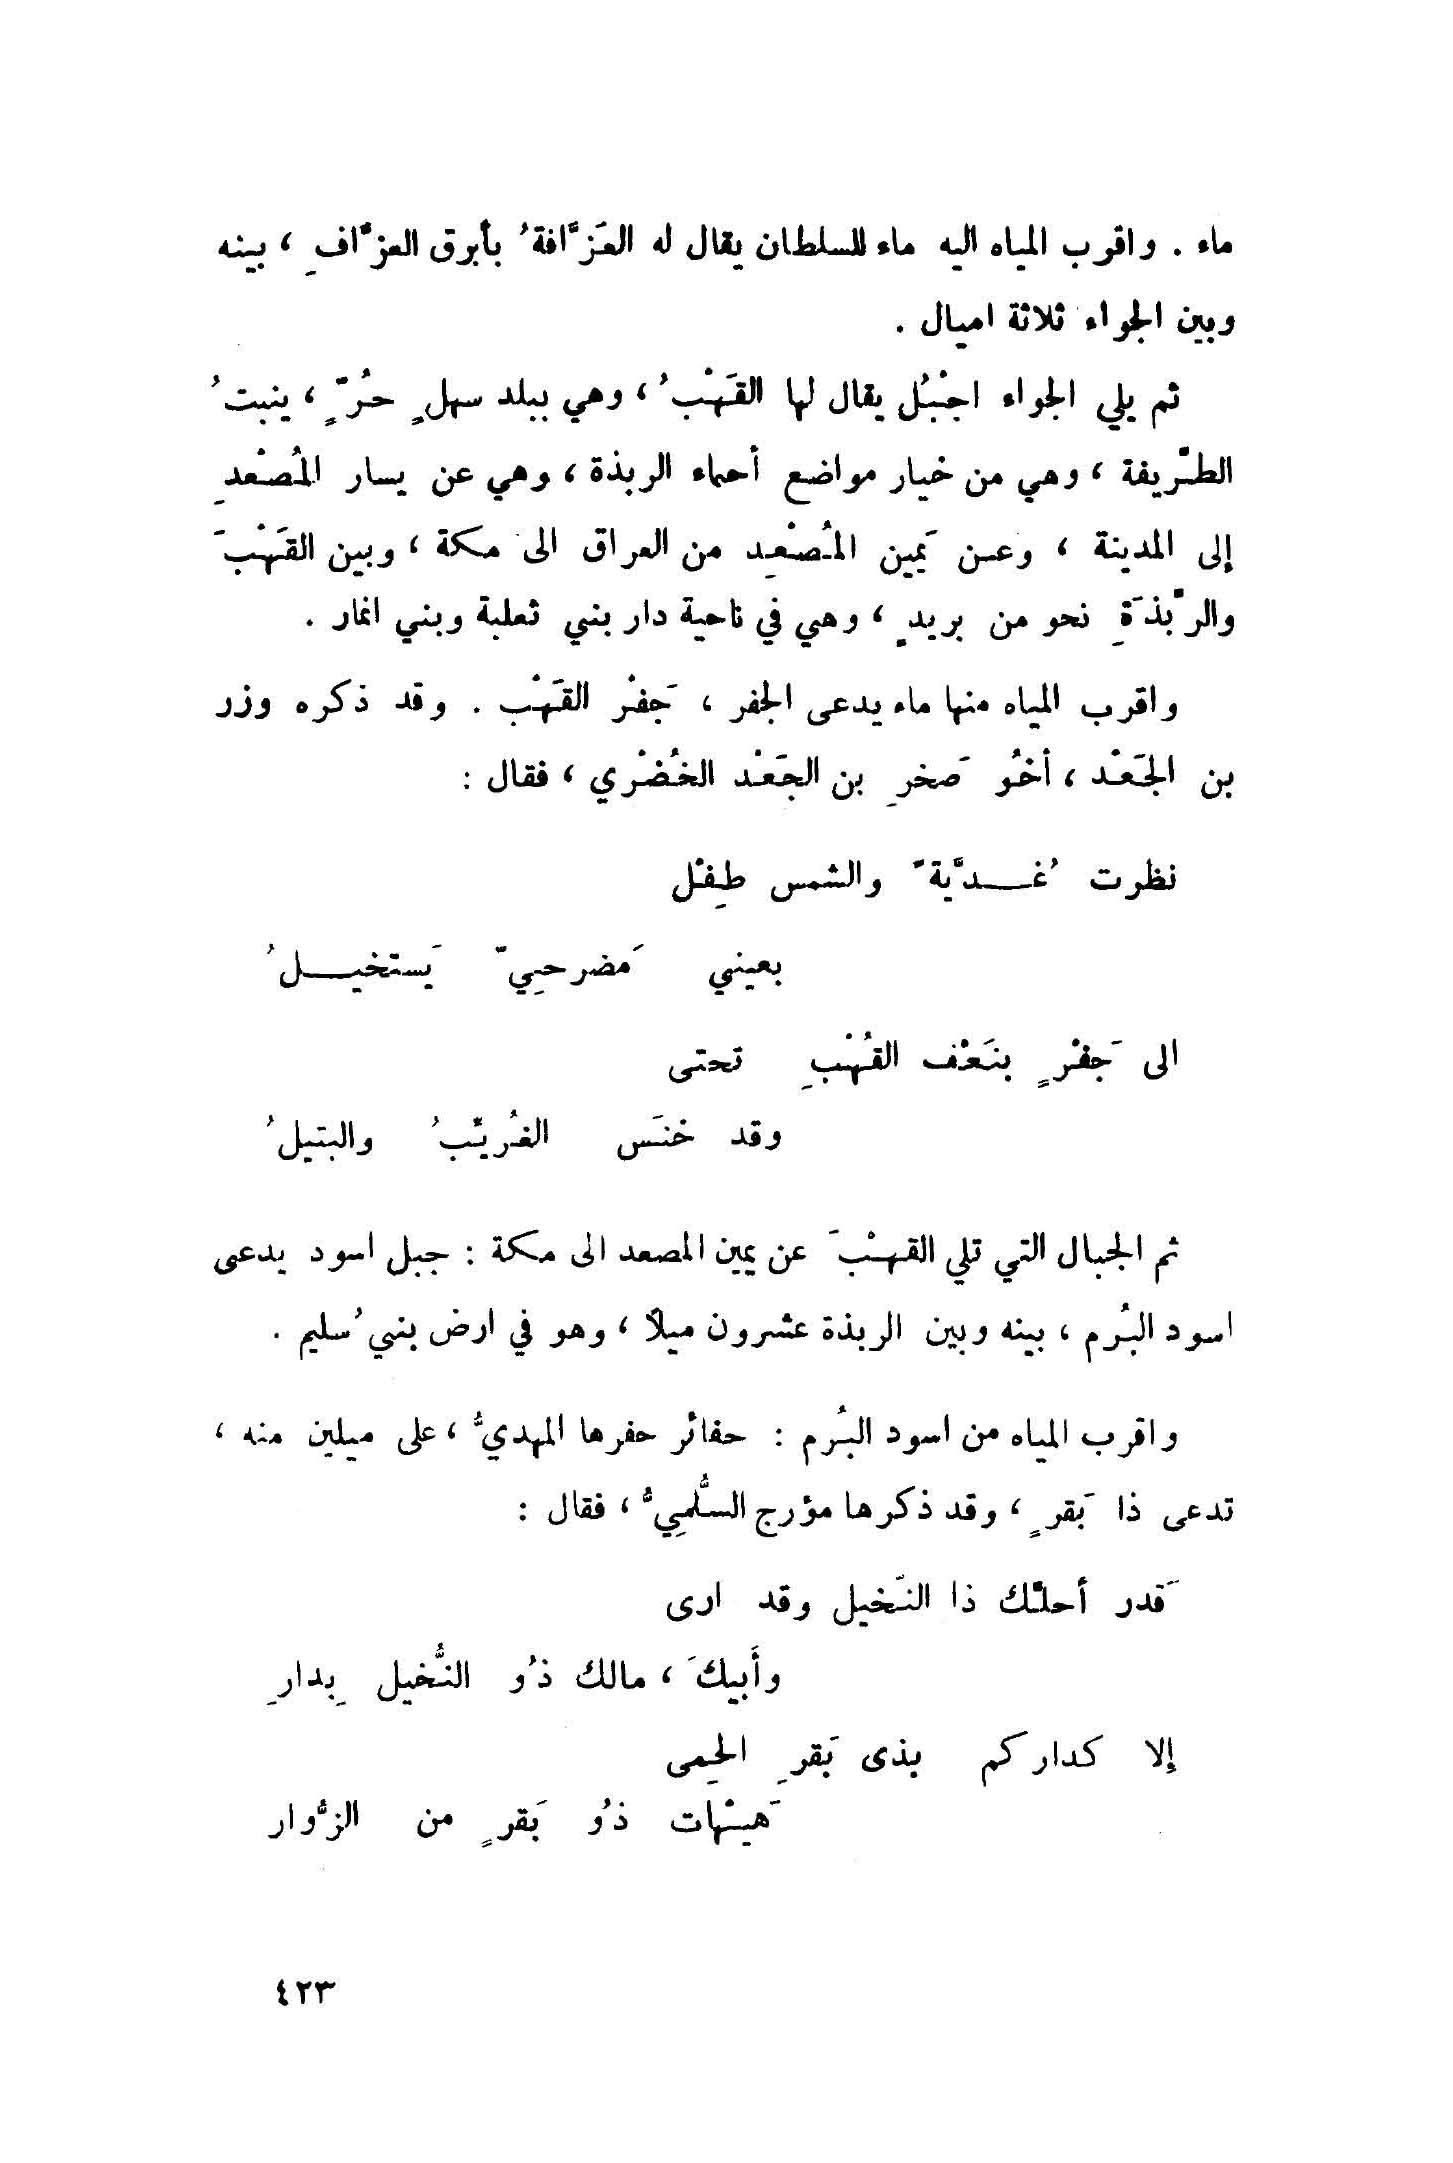 ماء . واقرب المياه اليه ماء للسلطان يقال له العَزَّافةُ بأبرق العزَّافِ ، بينه
وبين الجواء ثلاثة اميال .
ثم يلي الجواء اجْبُل يقال لها القَهْبُ ، وهي ببلد سهلٍ حُرٍّ ، ينبتُ
الطَّريفة ، وهي من خيار مواضع أحماء الربذة ، وهي عن يسار المُصْعدِ
إلى المدينة ، وعن يَمين المُصْعِد من العراق الى مكة ، وبين القَهْبَ
والرَّبذَةِ نحو من بريدٍ ، وهي في ناحية دار بني ثعلبة وبني انمار .
واقرب المياه منها ماء يدعى الجفر ، جَفْر القَهْب . وقد ذكره وزر
بن الجَعْد ، أخُو صَخرِ بن الجَعْد الخُضْري ، فقال :
نظرت غُديَّةً والشمس طِفْل
بعيني مَضرحِيّ يَستخيلُ
الى جَفْرٍ بنَعْف القُهْبِ تحتى
وقد خنَس الغُريِّبُ والبتيلُ
ثم الجبال التي تلي القهْبَ عن يمين المصعد الى مكة : جبل اسود يدعى
اسود البُرم ، بينه وبين الربذة عشرون ميلاً ، وهو في ارض بني سُليم .
واقرب المياه من اسود البُرم : حفائر حفرها المهديُّ ، على ميلين منه ،
تدعى ذا بَقرٍ ، وقد ذكرها مؤرج السُّلَمِيُّ ، فقال :
قَدر أحلَّك ذا النّخيل وقد ارى
وأَبيكَ ، مالك ذُو النُّخيل بِدارِ
إلا كداركم بذى بَقرِ الحِمى
هَيْهات ذُو بَقرٍ من الزُّوار
٤٢٣